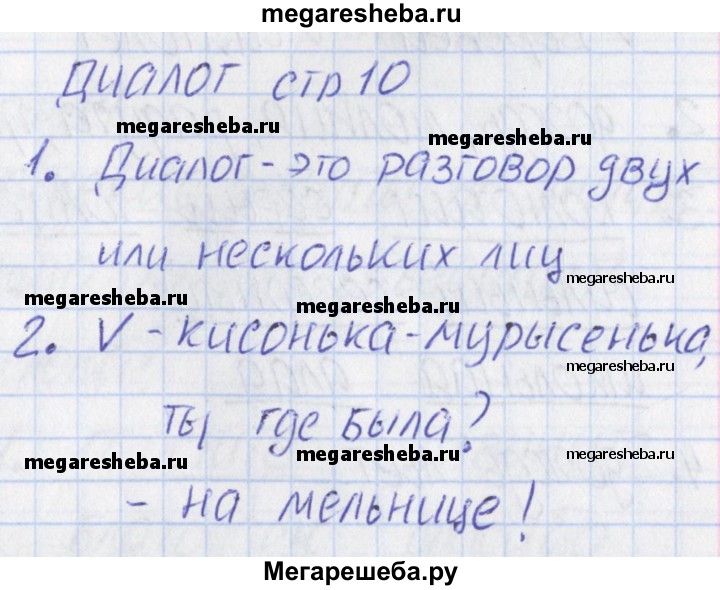 megaresheba.ru
Диалог стр 10
megaresheba.ru megaresheba.ru
1. Диалог - это разговор двух
или нескольких лиц
megaresheba.ru
megaresheba.ru megaresheba.ru
2. V - кисонька-мурысенька,
megaresheba.ru
ты где была?
megaresheba.ru megaresheba.ru megaresheba.ru
- на мельнице!
Мегарешеба.ру